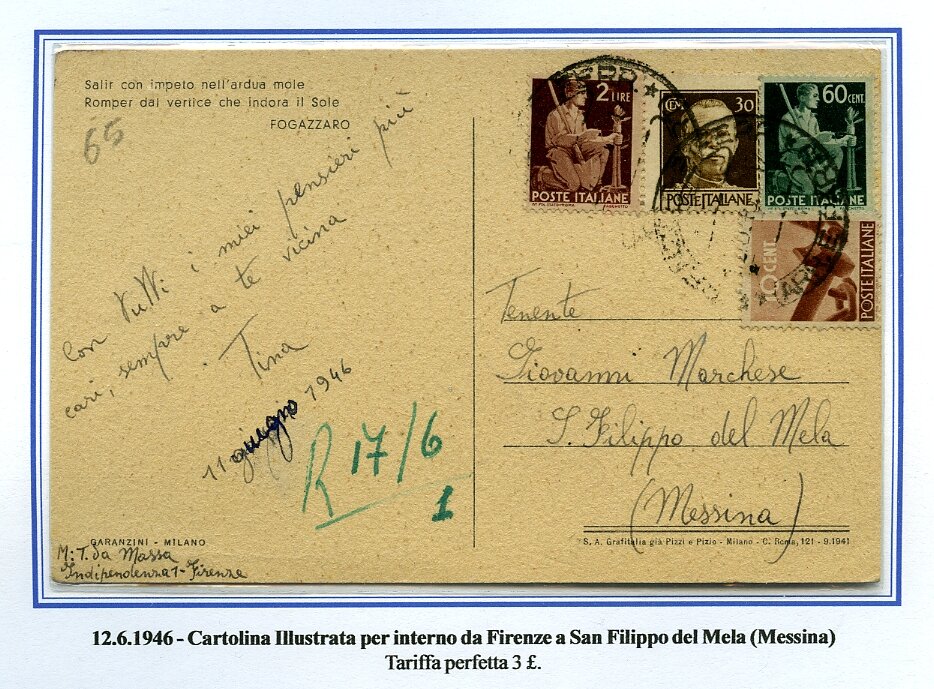 Salir con impeto nell'ardua mole
Romper dal vertice che indora il Sole
FOGAZZARO
65
Con tutti i miei pensieri più
cari, sempre a te vicina
Tina
11 giugno 1946
R 17/6
1
GARANZINI - MILANO
M. T. da Massa
Indipendenza 1 - Firenze
2 LIRE
POSTE ITALIANE
CEN. 30
POSTE ITALIANE
60 CENT.
POSTE ITALIANE
CENT.
POSTE ITALIANE
Tenente
Giovanni Marchese
S. Filippo del Mela
(Messina)
S. A. Grafitalia già Pizzi e Pizio - Milano - C. Roma, 121 - 9.1941
12.6.1946 - Cartolina Illustrata per interno da Firenze a San Filippo del Mela (Messina)
Tariffa perfetta 3 £.